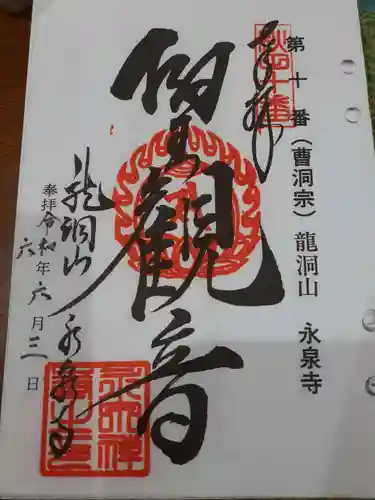 第十番（曹洞宗）龍洞山　永泉寺
奉拝
秋田十番
聖観音
龍洞山　永泉寺
奉拝令和六年六月三日